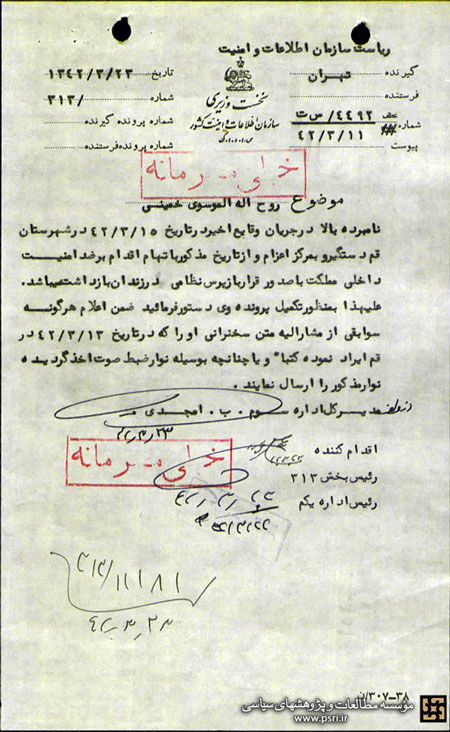 ریاست سازمان اطلاعات و امنیت
گیرنده تهران
فرستنده
شماره ۴۴۹۲/ س ت
۴۲/۳/۱۱
پیوست
نخست وزیری
سازمان اطلاعات و امنیت کشور
س.ا.و.ا.ک
تاریخ ۱۳۴۲/۳/۲۳
شماره /۳۱۳
شماره پرونده گیرنده
شماره پرونده فرستنده
خیلی محرمانه
موضوع روح اله الموسوی خمینی
نامبرده بالا درجریان وقایع اخیر درتاریخ ۴۲/۳/۱۵ درشهرستان
قم دستگیر و بمرکز اعزام و ازتاریخ مذکور باتهام اقدام برضد امنیت
داخلی مملکت با صدور قرار بازپرس نظامی درزندان بازداشت میباشد.
علیهذا بمنظور تکمیل پرونده وی دستور فرمائید ضمن اعلام هرگونه
سوابقی از مشارالیه متن سخنرانی او را که درتاریخ ۴۲/۳/۱۳ در
قم ایراد نموده کتبا" و یا چنانچه بوسیله نوار ضبط صوت اخذ گردیده
نوار مذکور را ارسال نمایند.
مدیرکل اداره سوم. ب. امجدی
۴۲/۳/۲۳
خیلی محرمانه
اقدام کننده
رئیس بخش ۳۱۳
رئیس اداره یکم
۳۱۳/۱۱۸۱
۴۲/۳/۲۳
۳۸-۳۰۷/ن
موسسه مطالعات و پژوهشهای سیاسی
www.psri.ir